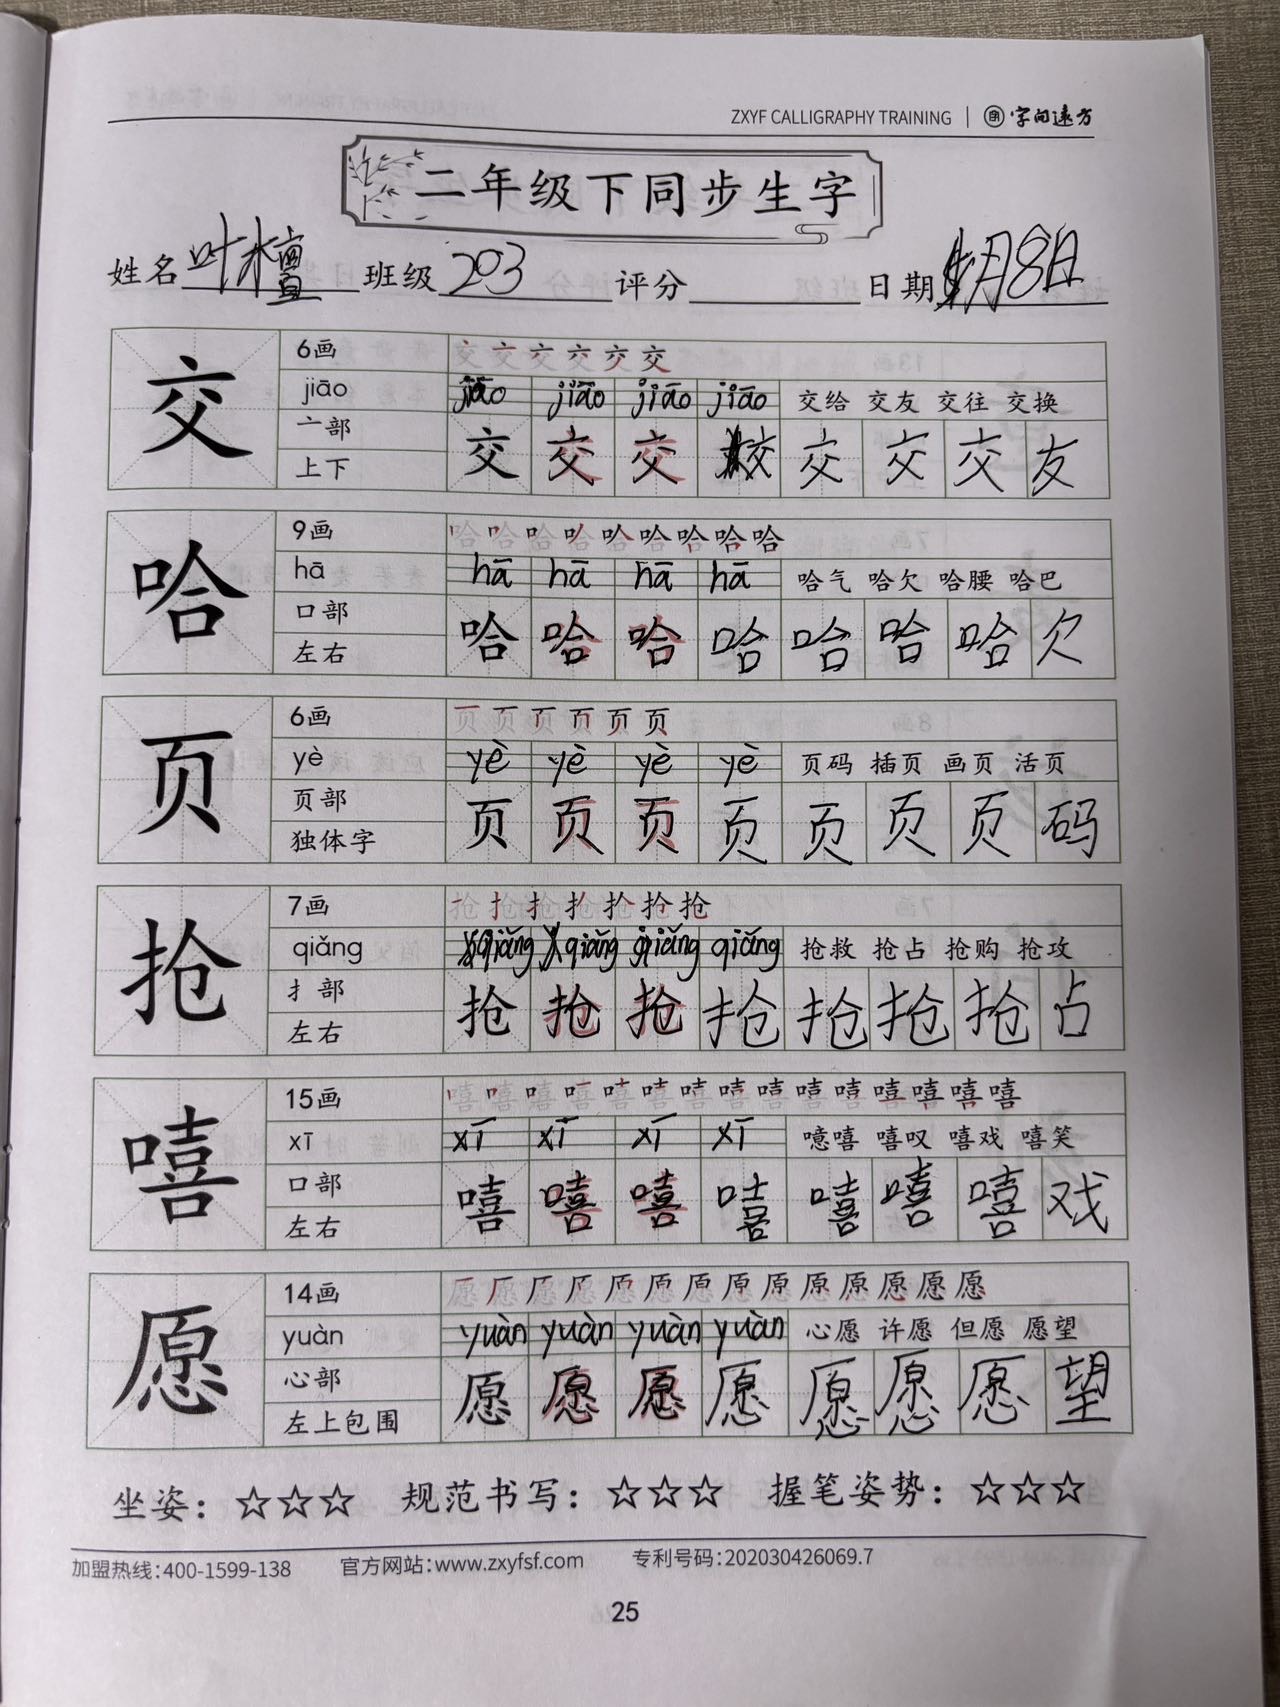 ZXYF CALLIGRAPHY TRAINING | 字间远方
二年级下同步生字
姓名 叶檀 班级 203 评分 日期 月8日
交 6画 交 交 交 交 交 交
jiāo jiāo jiāo jiāo jiāo 交给 交友 交往 交换
亠部 交 交 交 交 交 交 交 友
上下
哈 9画 哈 哈 哈 哈 哈 哈 哈 哈 哈
hā hā hā hā hā 哈气 哈欠 哈腰 哈巴
口部 哈 哈 哈 哈 哈 哈 哈 欠
左右
页 6画 页 页 页 页 页 页
yè yè yè yè yè 页码 插页 画页 活页
页部 页 页 页 页 页 页 页 码
独体字
抢 7画 抢 抢 抢 抢 抢 抢 抢
qiǎng qiǎng qiǎng qiǎng qiǎng 抢救 抢占 抢购 抢攻
扌部 抢 抢 抢 抢 抢 抢 抢 占
左右
嘻 15画 嘻 嘻 嘻 嘻 嘻 嘻 嘻 嘻 嘻 嘻 嘻 嘻 嘻 嘻 嘻
xī xī xī xī xī 噫嘻 嘻叹 嘻戏 嘻笑
口部 嘻 嘻 嘻 嘻 嘻 嘻 嘻 戏
左右
愿 14画 愿 愿 愿 愿 愿 愿 愿 愿 愿 愿 愿 愿 愿 愿
yuàn yuàn yuàn yuàn yuàn 心愿 许愿 但愿 愿望
心部 愿 愿 愿 愿 愿 愿 愿 望
左上包围
坐姿：☆☆☆ 规范书写：☆☆☆ 握笔姿势：☆☆☆
加盟热线：400-1599-138 官方网站：www.zxyfsf.com 专利号码：202030426069.7
25